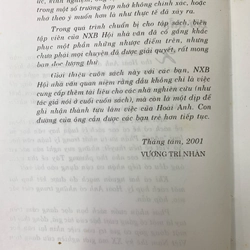 một tài ở trường hợp nhỏ không chính xác, hoặc
nhà theo ý muốn hơn là như thực tế đã xảy ra.
Trong quá trình chuẩn bị cho tập sách, biên
tập viên của NXB Hội nhà văn đã cố gắng khắc
phục một phần những nhược điểm trên, nhưng
chưa phải mọi chuyện đã được giải quyết, rất mong
bạn đọc lượng thứ.
Giới thiệu cuốn sách này với các bạn, NXB
Hội nhà văn quan niệm rằng đâu không chỉ là việc
cung cấp thêm tài liệu cho các nhà nghiên cứu (như
tác giả nói ở cuối cuốn sách), mà còn là một dịp để
ghi nhận thành tựu làm việc của Hoài Anh. Con
đường của ông cần được các bạn trẻ hơn tiếp tục.
Tháng tám, 2001
VƯƠNG TRÍ NHÀN